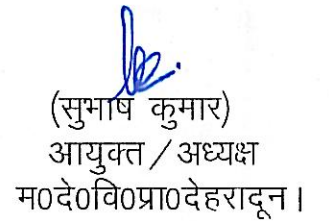 (सुभाष कुमार)
आयुक्त / अध्यक्ष
म0दे0वि0प्रा0देहरादून।